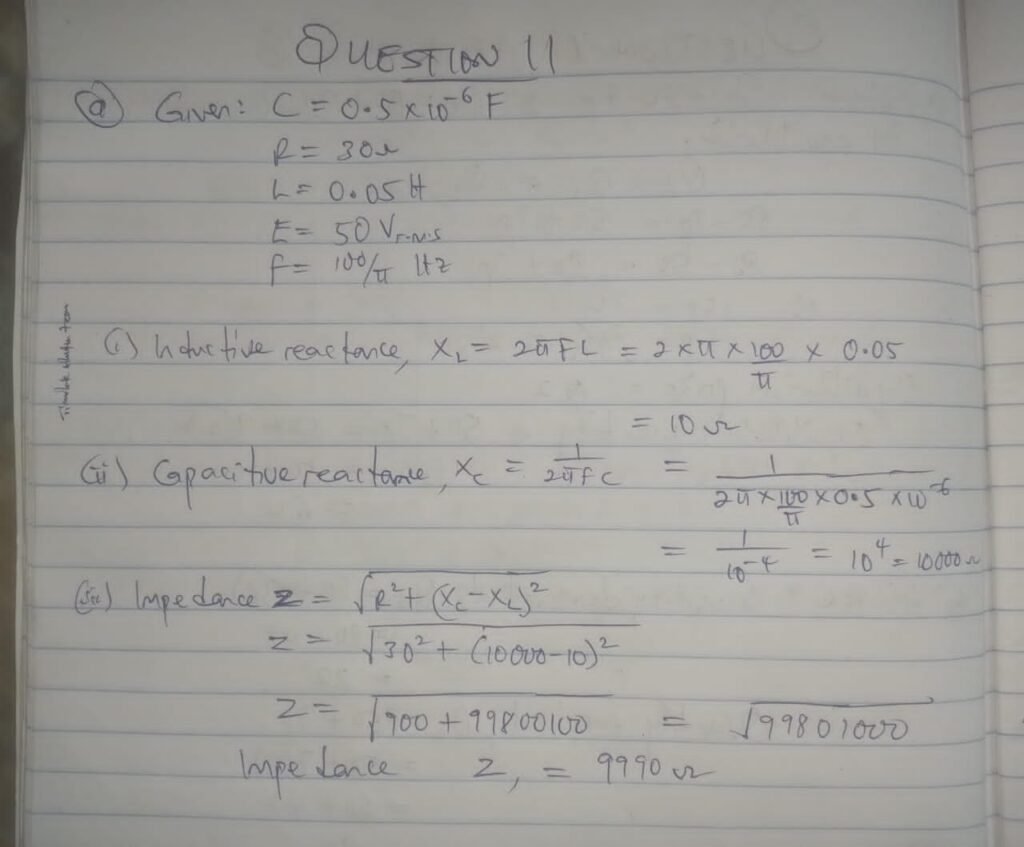 QUESTION 11
(a) Given: C = 0.5 × 10⁻⁶ F
R = 30Ω
L = 0.05 H
E = 50 Vr.m.s
f = 100/π Hz
(i) Inductive reactance, X_L = 2πFL = 2 × π × 100/π × 0.05
= 10 Ω
(ii) Capacitive reactance, X_c = 1/2πFC = 1/(2π × 100/π × 0.5 × 10⁻⁶)
= 1/10⁻⁴ = 10⁴ = 10000 Ω
(iii) Impedance Z = √R² + (X_c - X_L)²
Z = √30² + (10000-10)²
Z = √900 + 99800100 = √99801000
Impedance Z, = 9990 Ω